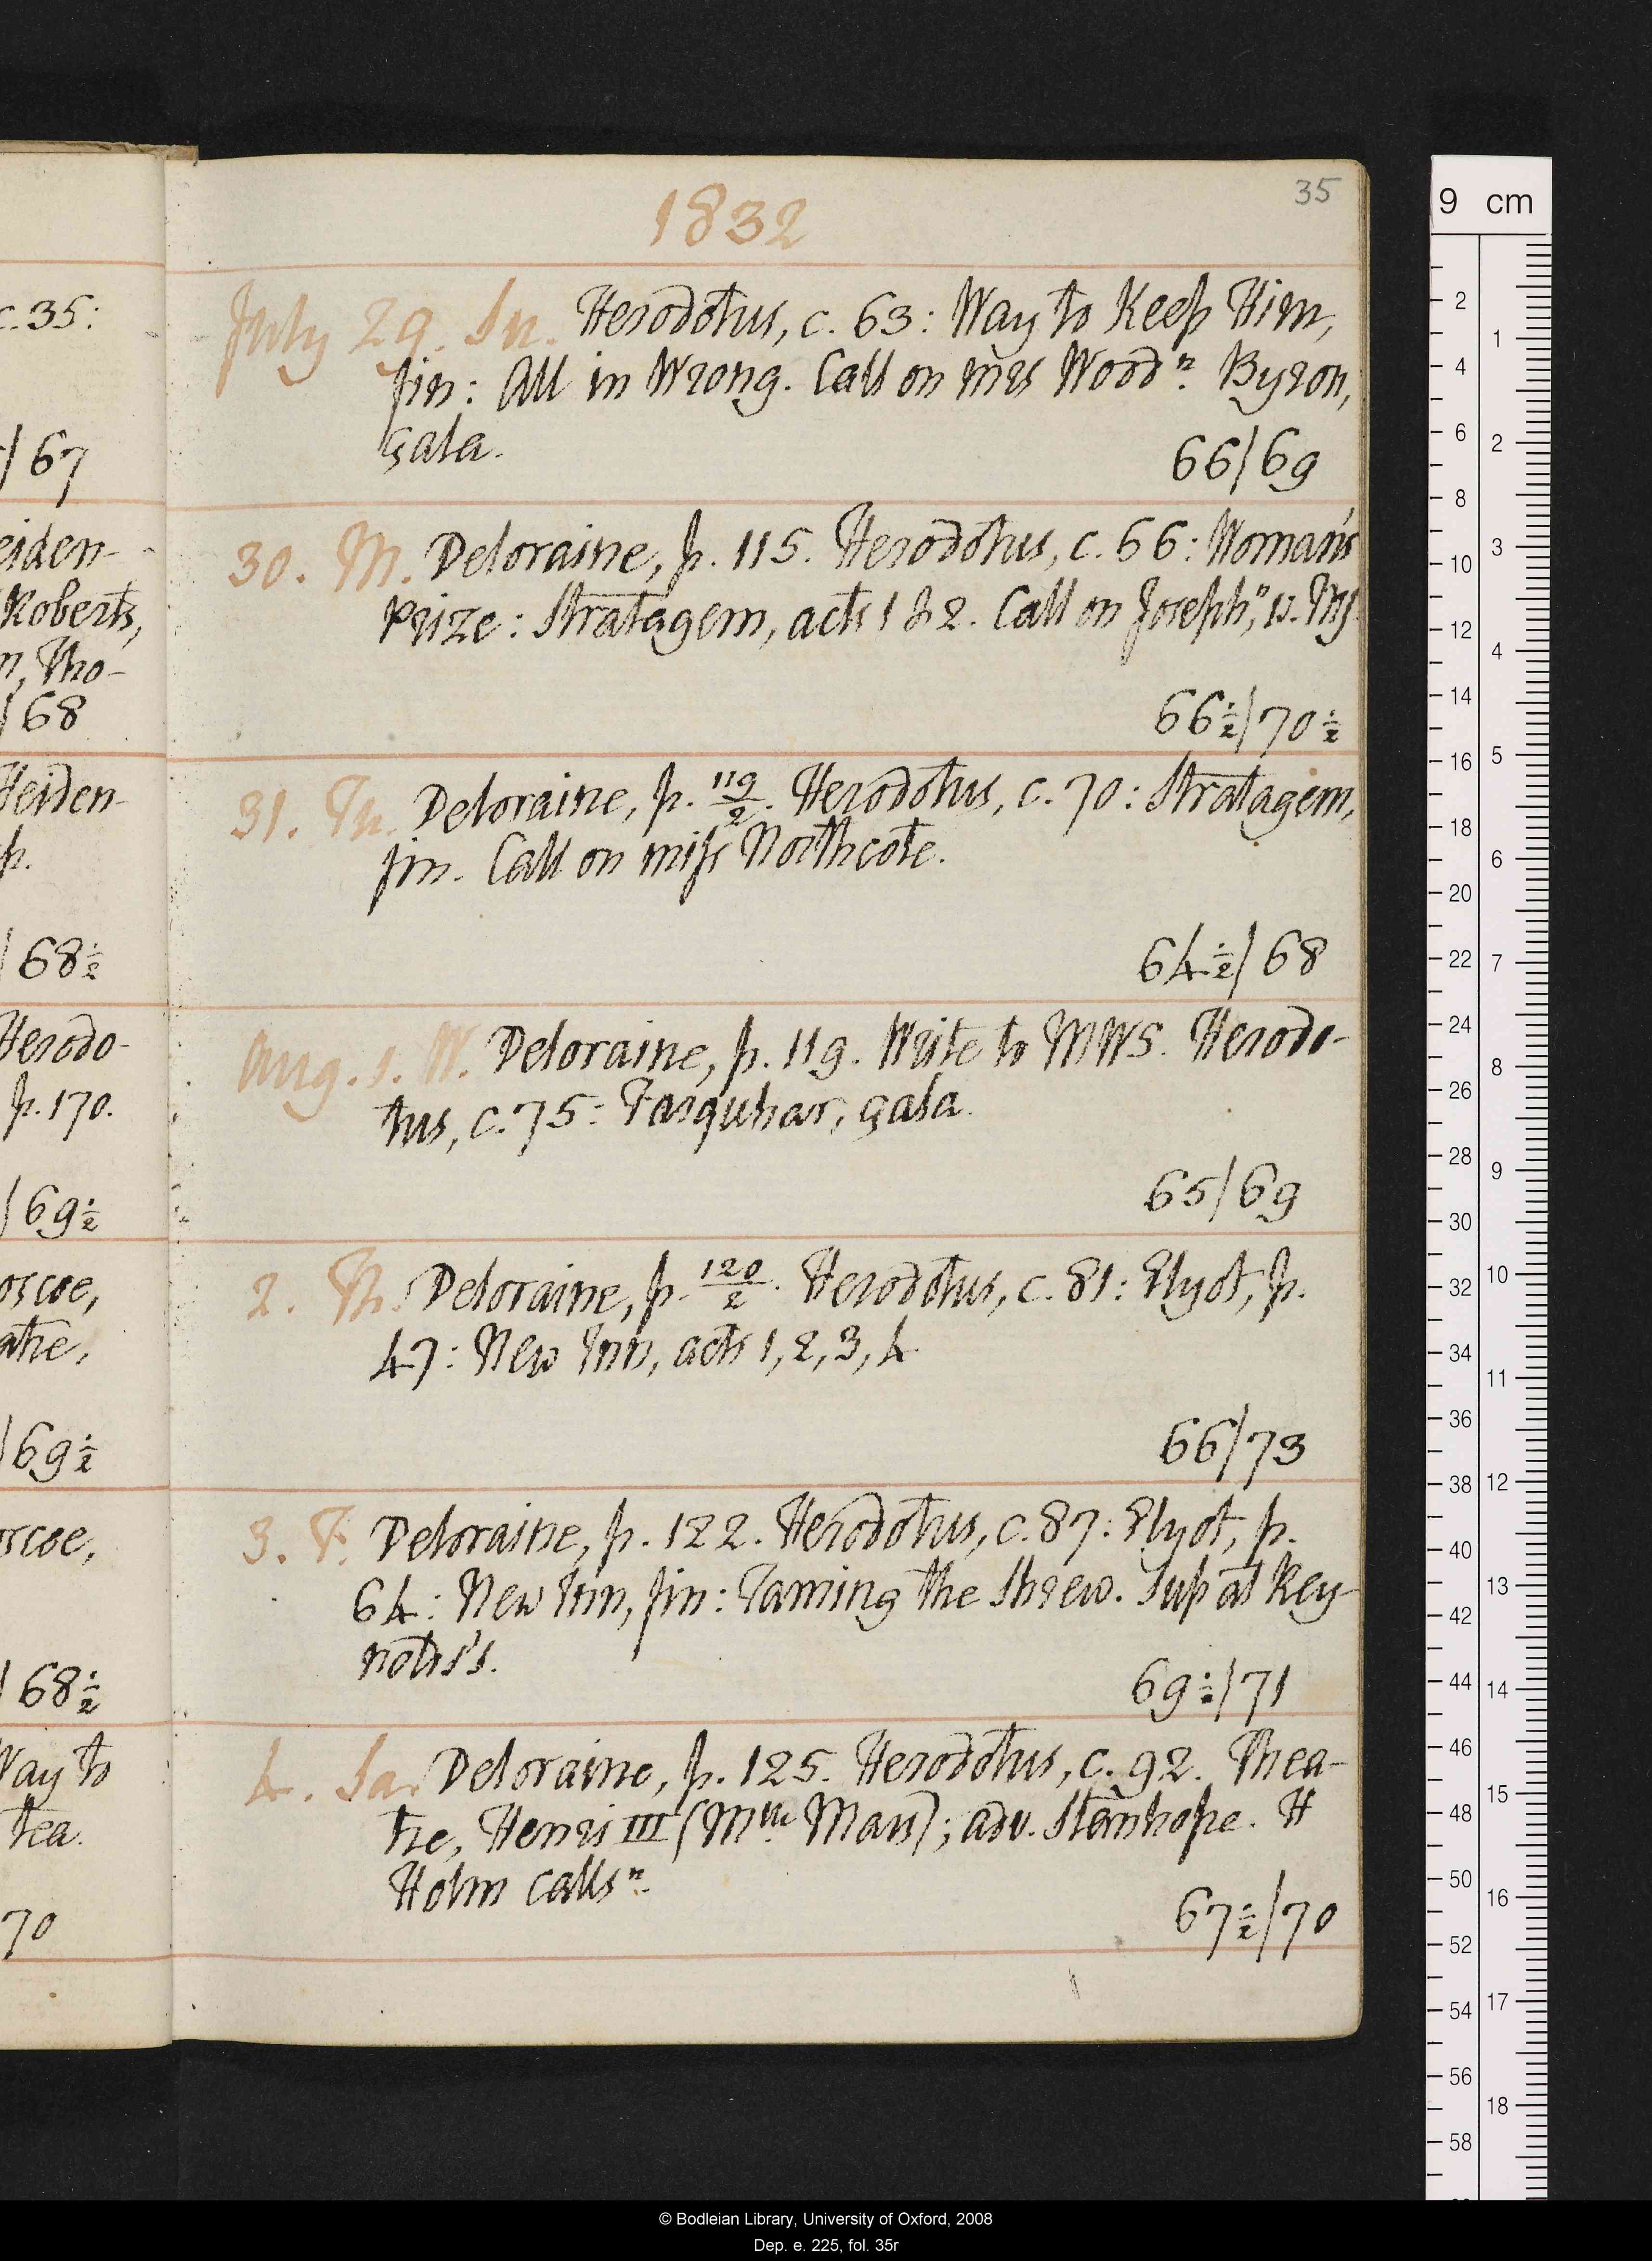 c. 35:
67
eiden-
Roberts,
n, Tho-
68
Heiden-
p.
68½
Herodo-
p. 170.
69½
oscoe,
atre,
69½
oscoe,
68½
Way to
tea.
70
35
1832
July 29. Su. Herodotus, c. 63: Way to Keep Him,
fin: All in Wrong. Call on Mrs Wood ⁿ. Byron,
çala.
66/69
30. M. Deloraine, p. 115. Herodotus, c. 66: Woman's
Prize: Stratagem, acts 1 & 2. Call on Joseph, ⁿ, w. MJ
66½/70½
31. Tu. Deloraine, p. 119/2. Herodotus, c. 70: Stratagem,
fin. Call on miss Northcote.
64½/68
Aug. 1. W. Deloraine, p. 119. Write to MWS. Herodo-
tus, c. 75: Farquhar, çala.
65/69
2. Th. Deloraine, p. 120/2. Herodotus, c. 81: Elyot, p.
47: New Inn, acts 1, 2, 3, 4
66/73
3. F. Deloraine, p. 122. Herodotus, c. 87: Elyot, p.
64: New Inn, fin: Taming the Shrew. Sup at Rey-
nolds's.
69½/71
4. Sa. Deloraine, p. 125. Herodotus, c. 92. Thea-
tre, Henri III (Mlle Mars); adv. Stanhope. H
Holm calls ⁿ.
67½/70
9 cm
2
4
6
8
10
12
14
16
18
20
22
24
26
28
30
32
34
36
38
40
42
44
46
48
50
52
54
56
58
1
2
3
4
5
6
7
8
9
10
11
12
13
14
15
16
17
18
© Bodleian Library, University of Oxford, 2008
Dep. e. 225, fol. 35r